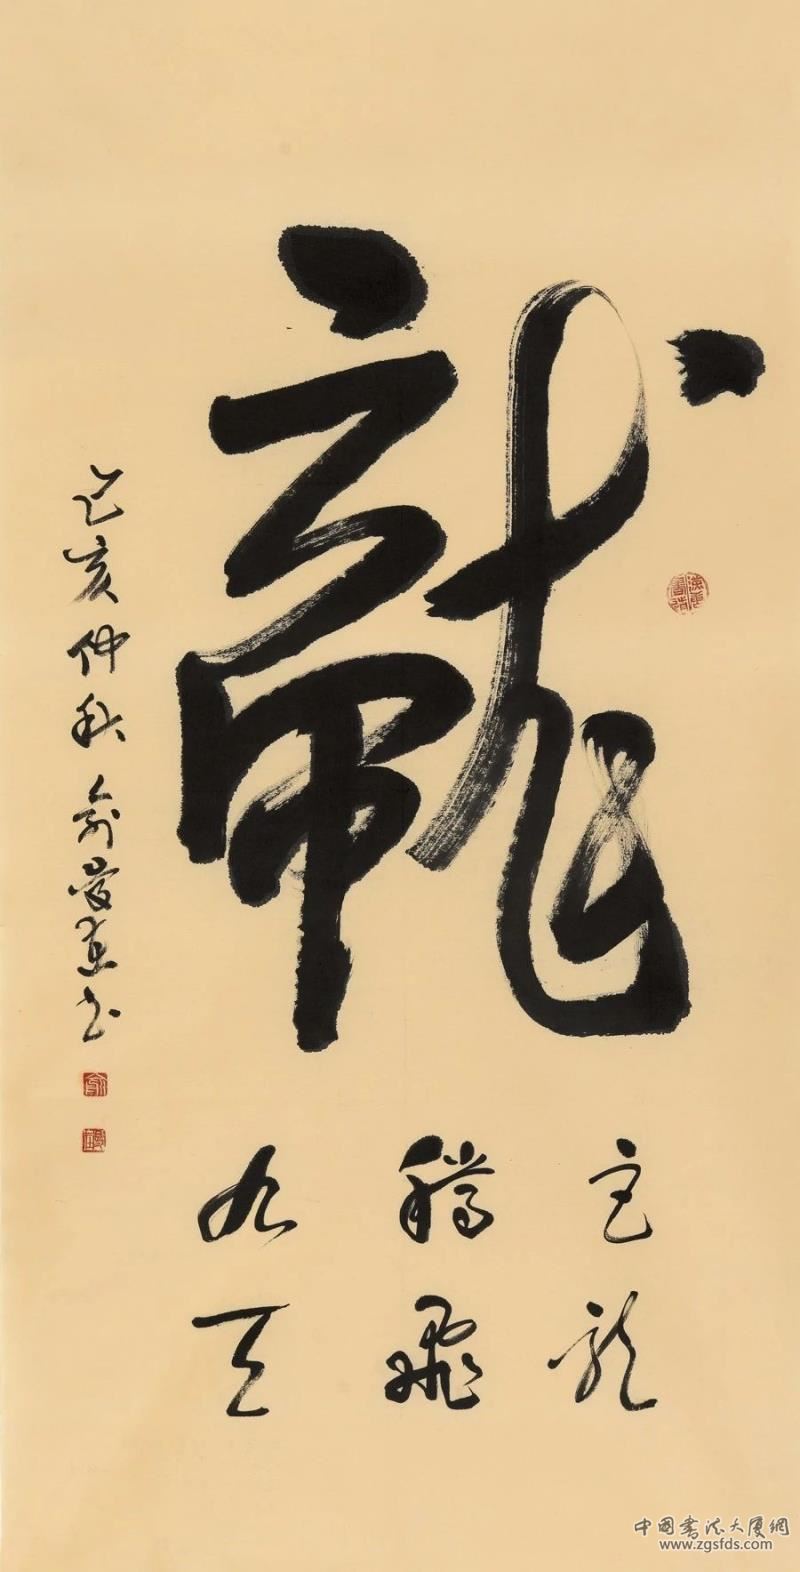 龍
巨龍
騰飛
九天
己亥仲秋 俞
中国書法大廈網
www.zgsfds.com